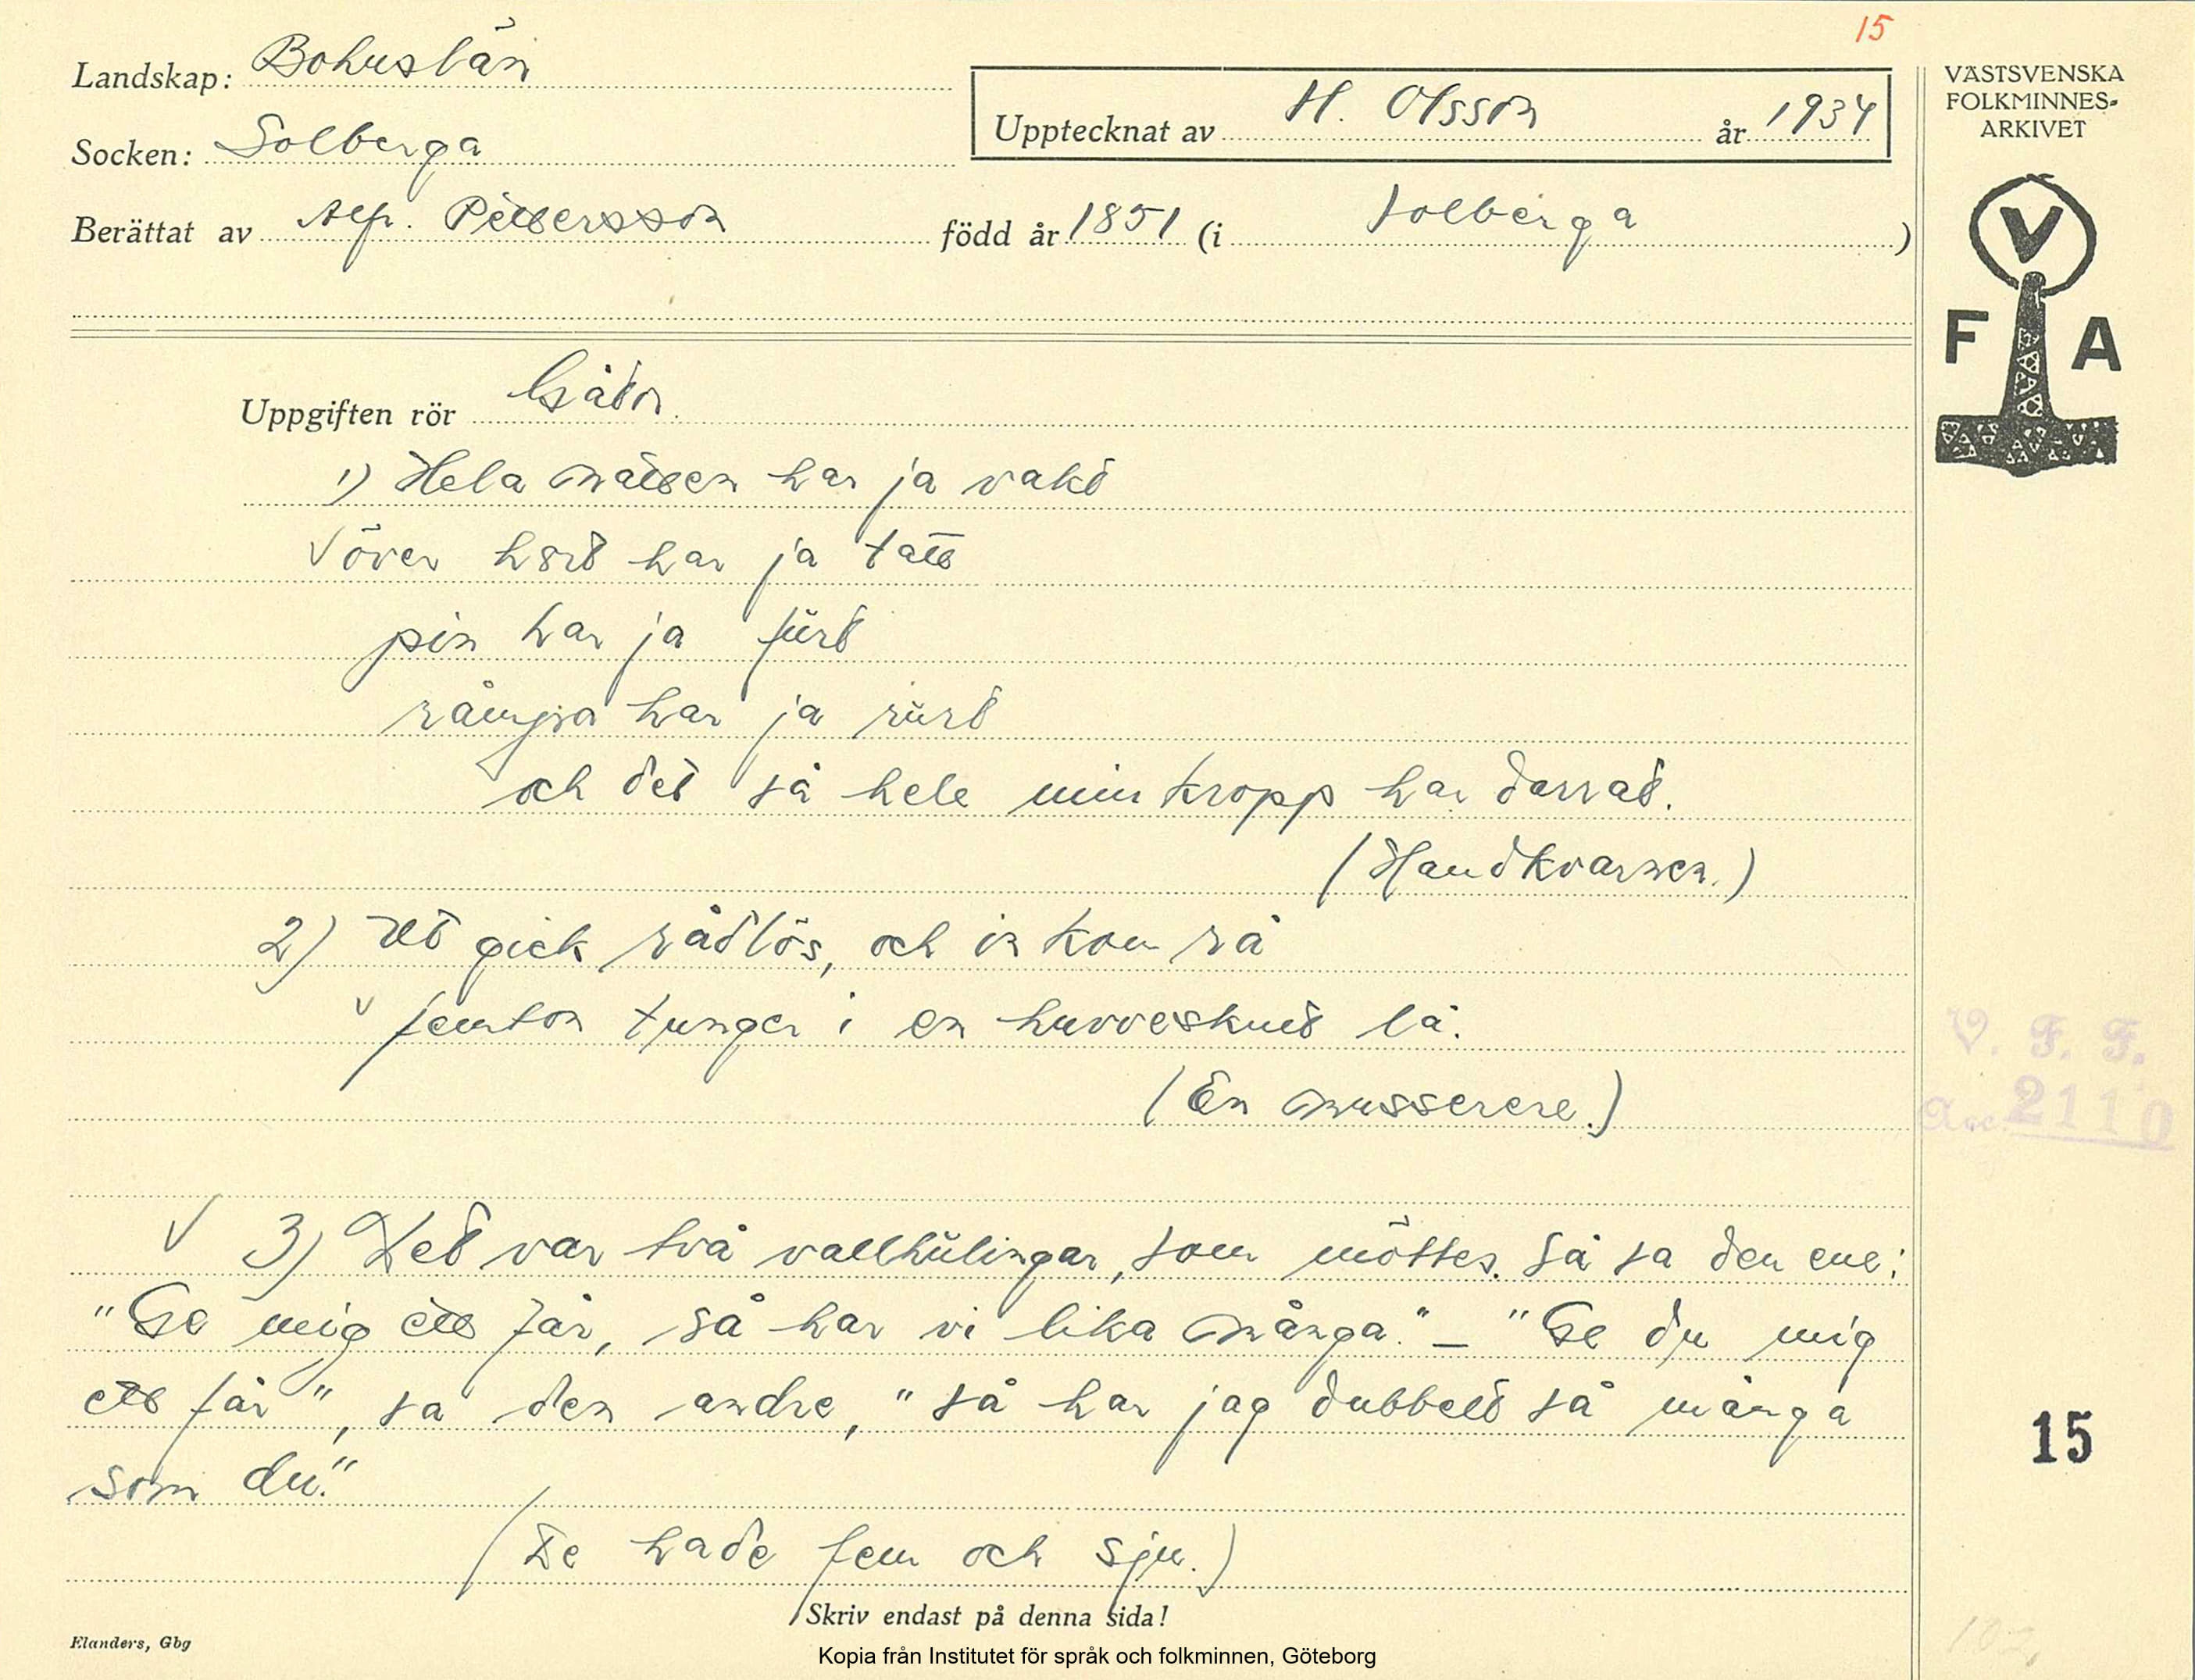 15
Landskap: Bohuslän
Upptecknat av H. Olsson år 1934
VÄSTSVENSKA
FOLKMINNES-
ARKIVET
Socken: Solberga
Berättat av Alfr. Pettersson född år 1851 (i Solberga)
V
F A
Uppgiften rör Gåtor.
1) Hela natten har ja vakt
V över har ja tatt
pin har ja fürt
har ja rürt
och det så hele min kropp har darrat.
(Handkvarnen.)
2) Ut gick rådlös, och in kom rå
v femton tunger i en huvveskult lå.
(En musserere.)
V. F. F.
Acc. 2110
V 3) Det var två vallhülingar, som möttes. Så sa den ene:
"Ge mig ett får, så har vi lika många." — "Ge du mig
ett får", sa den andre, "så har jag dubbelt så många
som du."
15
(De hade fem och sju.)
Skriv endast på denna sida!
Elanders, Gbg
Kopia från Institutet för språk och folkminnen, Göteborg